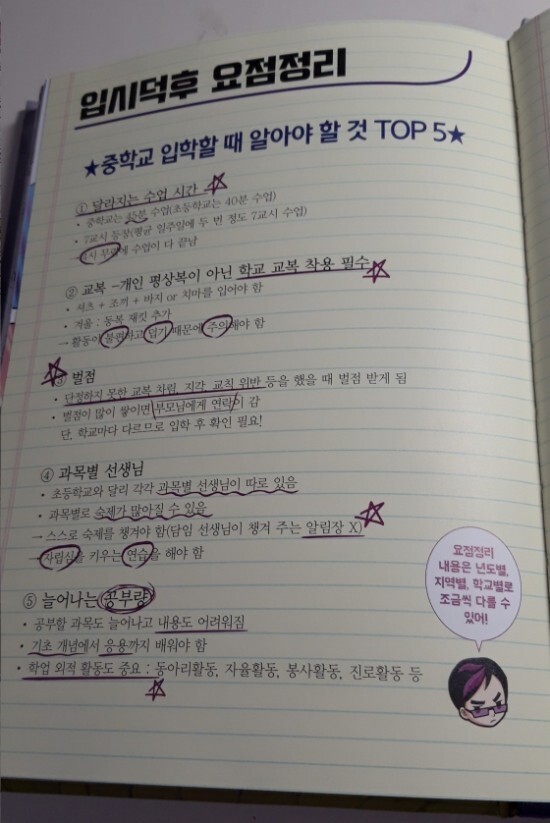 입시덕후 요점정리
★중학교 입학할 때 알아야 할 것 TOP 5★
① 달라지는 수업 시간
• 중학교는 45분 수업(초등학교는 40분 수업)
• 7교시 등장(평균 일주일에 두 번 정도 7교시 수업)
부근에 수업이 다 끝남
② 교복 –개인 평상복이 아닌 학교 교복 착용 필수
• 셔츠 + 조끼 + 바지 or 치마를 입어야 함
• 겨울 : 동복 재킷 추가
→ 활동이 불편하고 덥기 때문에 주의해야 함
③ 벌점
• 단정하지 못한 교복 차림, 지각, 교칙 위반 등을 했을 때 벌점 받게 됨
• 벌점이 많이 쌓이면 부모님에게 연락이 감
단, 학교마다 다르므로 입학 후 확인 필요!
④ 과목별 선생님
• 초등학교와 달리 각각 과목별 선생님이 따로 있음
• 과목별로 숙제가 많아질 수 있음
→ 스스로 숙제를 챙겨야 함(담임 선생님이 챙겨 주는 알림장 X)
→ 자립심을 키우는 연습을 해야 함
⑤ 늘어나는 공부량
• 공부할 과목도 늘어나고 내용도 어려워짐
• 기초 개념에서 응용까지 배워야 함
• 학업 외적 활동도 중요 : 동아리활동, 자율활동, 봉사활동, 진로활동 등
요점정리
내용은 년도별,
지역별, 학교별로
조금씩 다를 수
있어!